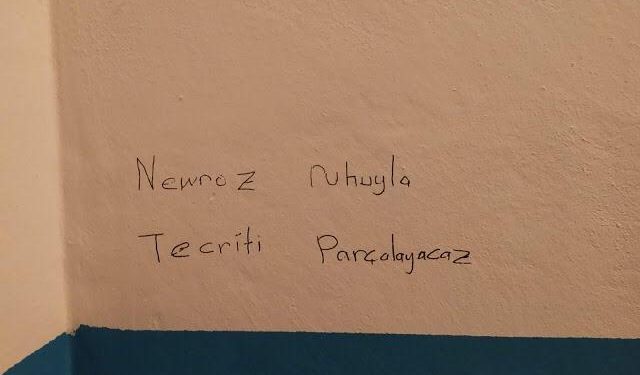 Newroz ruhuyla
Tecriti Parçalayacaz